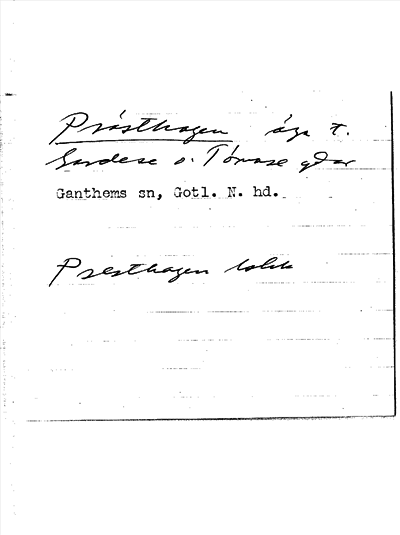 Prästhagen äga t.
Gardese o. Tomase gdar
Ganthems sn, Gotl. N. hd.
Præsthagen